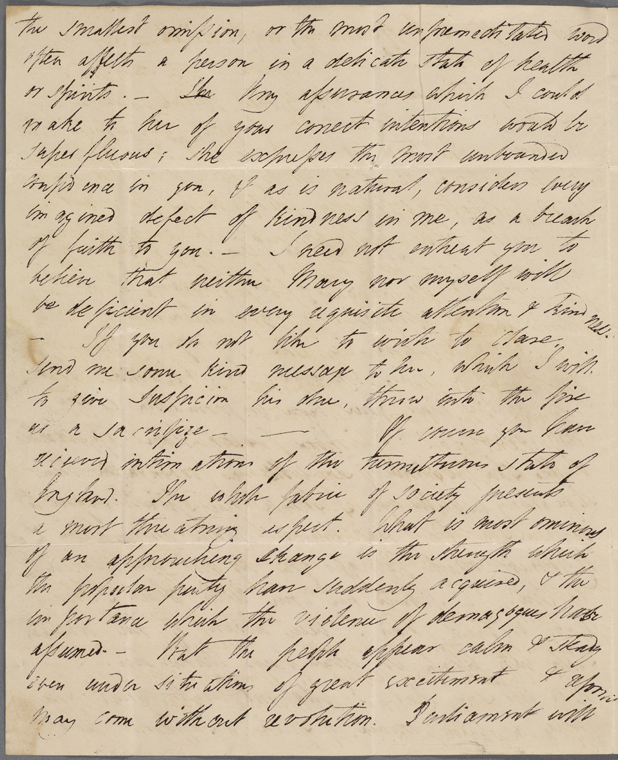 the smallest omission, or the most unpremeditated word
often affects a person in a delicate state of health
or spirits. — She Any assurances which I could
make to her of your correct intentions would be
superfluous; she expresses the most unbounded
confidence in you, & as is natural, considers every
imagined defect of kindness in me, as a breach
of faith to you. — I need not entreat you to
believe that neither Mary nor myself will
be deficient in every requisite attention & kindness.
— If you do not like to write to Clare
send me some kind message to her, which I will
to give Suspicion his due, throw into the fire
as a sacrifize — — Of course you have
received intimations of the tumultuous state of
England. The whole fabric of society presents
a most threatning aspect. What is most ominous
of an approaching change is the strength which
the popular party have suddenly acquired, & the
importance which the violence of demagogues have
assumed. — But the people appear calm & steady
even under situations of great excitement & reform
may come without revolution. Parliament will